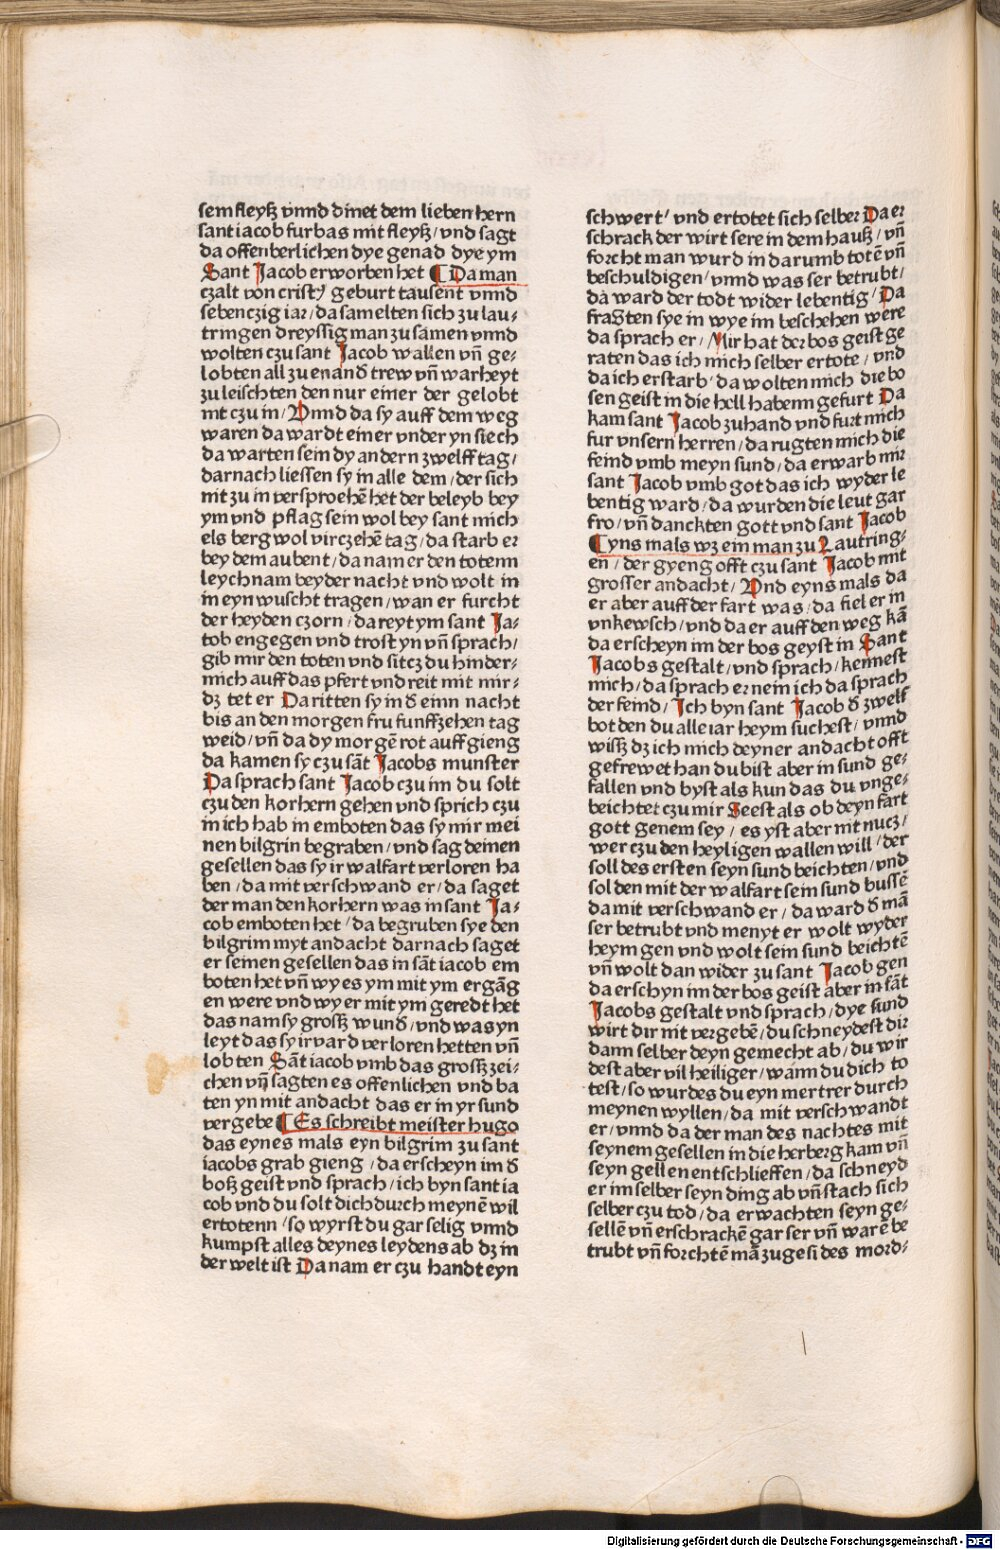 sem fleyß vnnd dinet dem lieben hern
sant iacob furbas mit fleyß/ vnd sagt
da offenberlichen dye genad dye ym
Sant Jacob erworben het ¶ Da man
czalt von cristꝰ geburt tausent vnnd
sebenczig iar/ da samelten sich zu lau⸗
tringen dreyssig man zu samen vnnd
wolten czu sant Jacob wallen vñ ge⸗
lobten all zu enand̄ trew vñ warheyt
zu leischten den nur einer der gelobt
nit czu in/ Vnnd da sy auff dem weg
waren da wardt einer vnder yn siech
da warten sein dy andern zwelff tag/
darnach liessen sy in alle dem/ der sich
nit zu in versproehē het der beleyb bey
ym vnd pflag sein wol bey sant mich
els berg wol virczehē tag/ da starb er
bey dem aubent/ da nam er den totenn
leychnam bey der nacht vnd wolt in
in eyn wuscht tragen/ wan er furcht
der heyden czorn/ da reyt ym sant Ja⸗
tob engegen vnd trost yn vñ sprach/
gib mir den toten vnd sitcz du hinder⸗
mich auff das pfert vnd reit mit mir⸗
dz tet er Da ritten sy in d̄ einn nacht
bis an den morgen fru funffzehen tag
weid/ vñ da dy morgē rot auff gieng
da kamen sy czu sāt Jacobs munster
Da sprach sant Jacob czu im du solt
czu den korhern gehen vnd sprich czu
in ich hab in emboten das sy mir mei
nen bilgrin begraben/ vnd sag deinen
gesellen das sy ir walfart verloren ha
ben/ da mit verschwand er/ da saget
der man den korhern was in sant Ja⸗
cob emboten het/ da begruben sye den
bilgrim myt andacht darnach saget
er seinen gesellen das in sāt iacob em
boten het vñ wy es ym mit ym ergāg
en were vnd wy er mit ym geredt het
das nam sy grosß wund̄/ vnd was yn
leyt das sy ir vard verloren hetten vñ
lobten Sāt iacob vmb das grosß zei⸗
chen vñ sagten es offenlichen vnd ba
ten yn mit andacht das er in yr sund
vergebe ¶ Es schreibt meister hugo
das eynes mals eyn bilgrim zu sant
iacobs grab gieng/ da erscheyn im d̄
boß geist vnd sprach/ ich byn sant ia
cob vnd du solt dich durch meynē wil
ertotenn/ so wyrst du gar selig vnnd
kumpst alles deynes leydens ab dz in
der welt ist Da nam er czu handt eyn
schwert/ vnd ertotet sich selber Da er
schrack der wirt sere in dem hauß/ vñ
forcht man wurd in darumb totē vñ
beschuldigen/ vnnd was ser betrubt/
da ward der todt wider lebentig/ Da
fragten sye in wye im beschehen were
da sprach er/ Mir hat der bos geist ge
raten das ich mich selber ertote/ vnd
da ich erstarb/ da wolten mich die bo
sen geist in die hell habenn gefurt Da
kam sant Jacob zuhand vnd furt mich
fur vnsern herren/ da rugten mich die
feind vmb meyn sund/ da erwarb mir
sant Jacob vmb got das ich wyder le
bentig ward/ da wurden die leut gar
fro/ vñ danckten gott vnd sant Jacob
¶ Eyns mals wz ein man zu Lautring⸗
en/ der gyeng offt czu sant Jacob mit
grosser andacht/ Vnd eyns mals da
er aber auff der fart was/ da fiel er in
vnkewsch/ vnd da er auff den weg kā
da erscheyn im der bos geyst in Sant
Jacobs gestalt/ vnd sprach/ kennest
mich/ da sprach er nein ich da sprach
der feind/ Ich byn sant Jacob d̄ zwelf
bot den du alle iar heym suchest/ vnnd
wisß dz ich mich deyner andacht offt
gefrewet han du bist aber in sund ge⸗
fallen vnd byst als kun das du vnge⸗
beichtet czu mir Geest als ob deyn fart
gott genem sey/ es yst aber nit nucz/
wer czu den heyligen wallen will/ der
soll des ersten seyn sund beichten/ vnd
sol den mit der walfart sein sund bussē
da mit verschwand er/ da ward d̄ mā
ser betrubt vnd menyt er wolt wyder
heym gen vnd wolt sein sund beichtē
vñ wolt dan wider zu sant Jacob gen
da erschyn im der bos geist aber in sāt
Jacobs gestalt vnd sprach/ dye sund
wirt dir nit vergebē/ du schneydest dir
dann selber deyn gemecht ab/ du wir
dest aber vil heiliger/ wann du dich to
test/ so wurdes du eyn mertrer durch
meynen wyllen/ da mit verschwandt
er/ vnnd da der man des nachtes mit
seynem gesellen in die herberg kam vñ
seyn gellen entschlieffen/ da schneyd
er im selber seyn ding ab vñ stach sich
selber czu tod/ da erwachten seyn ge⸗
sellē vñ erschrackē gar ser vñ warē be
trubt vñ forchtē mā zuge si des mord⸗
Digitalisierung gefördert durch die Deutsche Forschungsgemeinschaft - DFG